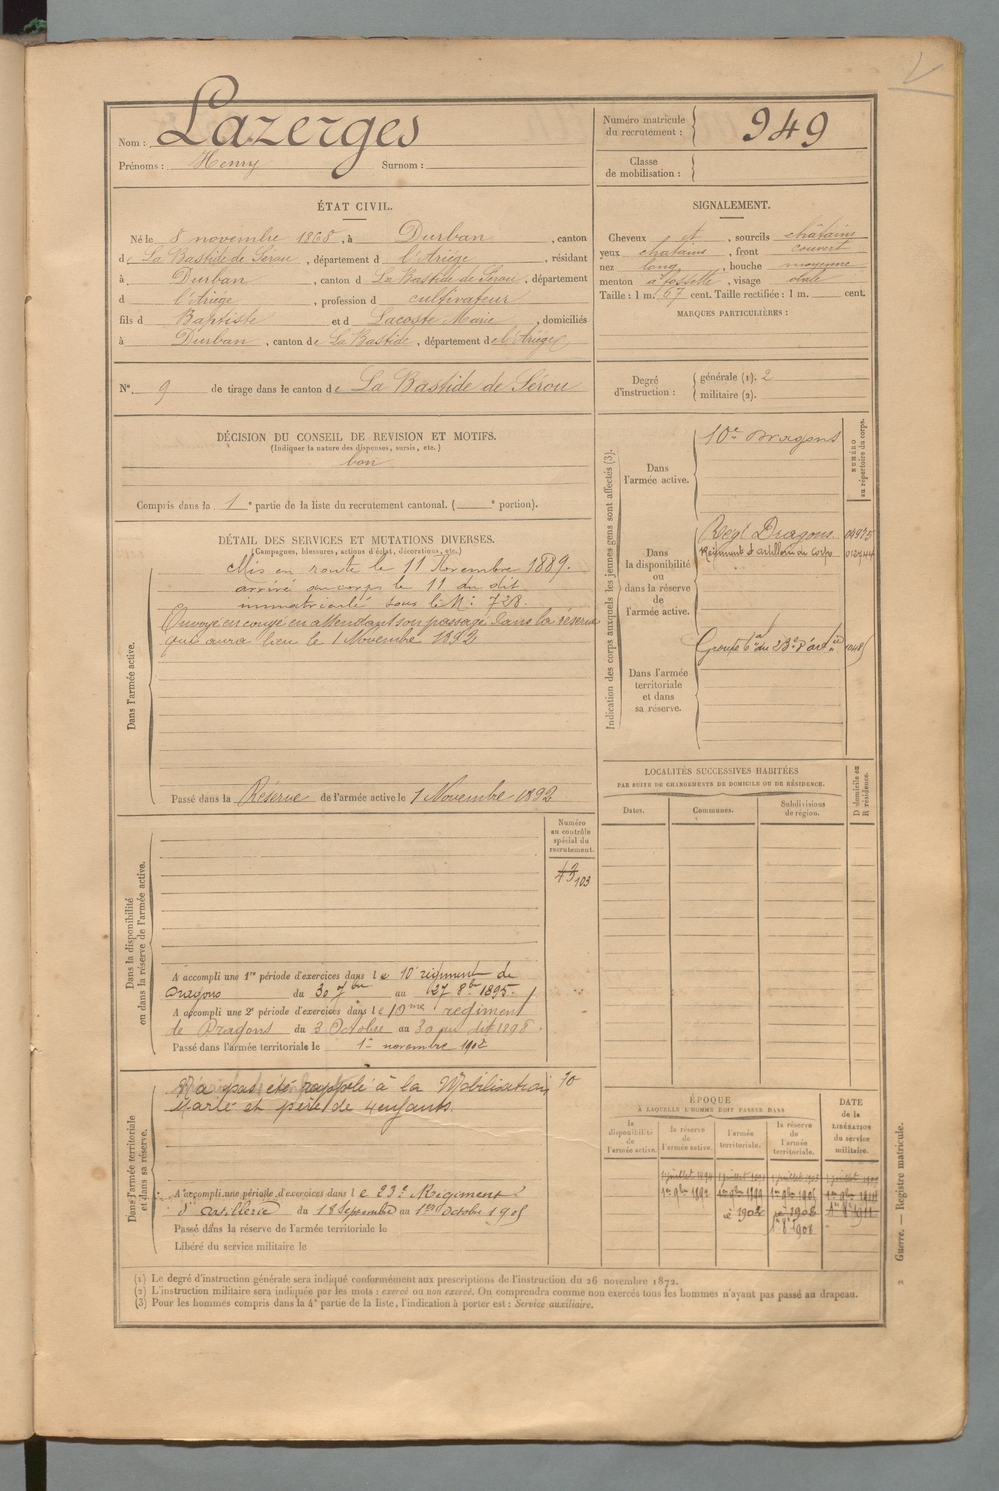 Nom : Lazerges
Prénoms : Henry Surnom :
Numéro matricule du recrutement : 949
Classe de mobilisation :
ÉTAT CIVIL.
Né le 8 novembre 1868, à Durban, canton
d La Bastide de Sérou, département d l'Ariége, résidant
à Durban, canton d La Bastide de Sérou, département
d l'Ariége, profession d cultivateur
fils d Baptiste et d Lacoste Marie, domiciliés
à Durban, canton de La Bastide, département de l'Ariége
N° 9 de tirage dans le canton de La Bastide de Sérou
SIGNALEMENT.
Cheveux et, sourcils châtains
yeux chatains, front couvert
nez long, bouche moyenne
menton à fossette, visage ovale
Taille : 1 m. 67 cent. Taille rectifiée : 1 m. cent.
MARQUES PARTICULIÈRES :
Degré d'instruction : générale (1). 2
militaire (2).
DÉCISION DU CONSEIL DE REVISION ET MOTIFS.
(Indiquer la nature des dispenses, sursis, etc.)
bon
Compris dans la 1e partie de la liste du recrutement cantonal. ( e portion).
DÉTAIL DES SERVICES ET MUTATIONS DIVERSES.
(Campagnes, blessures, actions d'éclat, décorations, etc.)
Dans l'armée active.
Mis en route le 11 Novembre 1889.
arrivé au corps le 11 du dit
immatriculé sous le N° 728.
Envoyé en congé en attendant son passage dans la réserve
qui aura lieu le 1 Novembre 1892
Passé dans la Réserve de l'armée active le 1 Novembre 1892
Indication des corps auxquels les jeunes gens sont affectés (3).
NUMÉRO au répertoire du corps.
Dans l'armée active.
10e Dragons
Dans la disponibilité ou dans la réserve de l'armée active.
Regt Dragons
Régiment d'artillerie de corps
Dans l'armée territoriale et dans sa réserve.
LOCALITÉS SUCCESSIVES HABITÉES
PAR SUITE DE CHANGEMENTS DE DOMICILE OU DE RÉSIDENCE.
Dates. Communes. Subdivisions de région. D domicile ou R résidence.
Dans la disponibilité ou dans la réserve de l'armée active.
Numéro au contrôle spécial du recrutement.
103
A accompli une 1re période d'exercices dans le 10e régiment de
dragons du 30 7bre au 27 8bre 1895.
A accompli une 2e période d'exercices dans le 10me régiment
de Dragons du 3 Octobre au 30 du dit 1898.
Passé dans l'armée territoriale le 1er novembre 1902
Dans l'armée territoriale et dans sa réserve.
N'a pas été rappelé à la Mobilisation 10
Marié et père de 4 enfants.
A accompli une période d'exercices dans le 23e Régiment
d'artillerie du 18 Septembre au 1er Octobre 1905
Passé dans la réserve de l'armée territoriale le
Libéré du service militaire le
ÉPOQUE
À LAQUELLE L'HOMME DOIT PASSER DANS
la disponibilité de l'armée active.
la réserve de l'armée active.
l'armée territoriale.
la réserve de l'armée territoriale.
DATE de la LIBÉRATION du service militaire.
(1) Le degré d'instruction générale sera indiqué conformément aux prescriptions de l'instruction du 26 novembre 1872.
(2) L'instruction militaire sera indiquée par les mots : exercé ou non exercé. On comprendra comme non exercés tous les hommes n'ayant pas passé au drapeau.
(3) Pour les hommes compris dans la 4e partie de la liste, l'indication à porter est : Service auxiliaire.
Guerre. — Registre matricule.